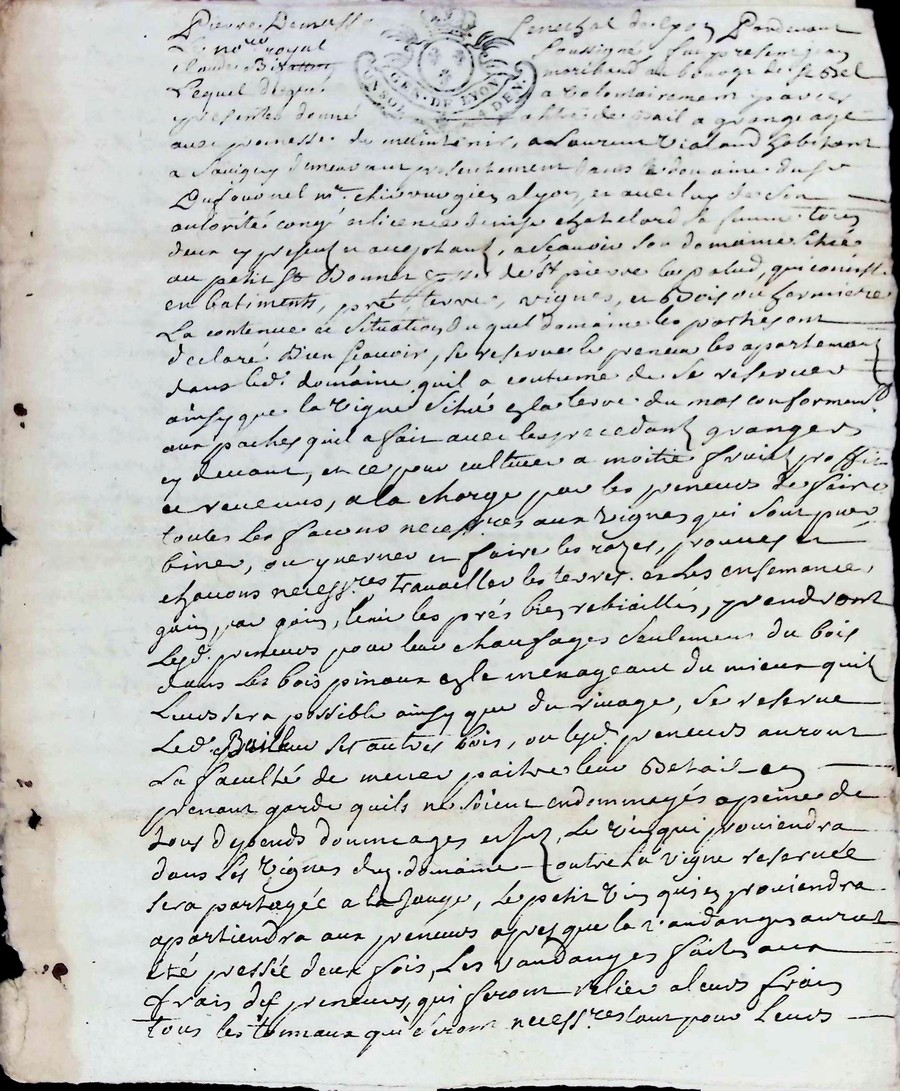 Pierre Senechal de Lyon Pardevant
Le no.re royal soussigné fut present jean
claude marchand au bourg de st Bel
Lequel de gré a volontairement par ces
presentes donné a titre de Bail a grangeage
avec promesse de maintenir, a Laurent Vialand habitant
a Savigny demeurant presentement dans le domaine du sr
Dufournel me. chirurgien a lyon, et avec luy de son
autorité congé et licence denise chatelard sa femme tous
deux cy present et acceptants, ascavoir son domaine situé
au petit st Bonnet de st pierre la palud, qui consiste
en batiments, pré terre, vignes, et Bois
La contenue et situation duquel domaine les parties ont
declaré Bien scavoir, se reserve le preneur les apartements
dans led. domaine quil a coutume de se reserver
ainsy que la vigne situé et la terre du mas conformement
aux paches quil a fait avec les precedants grangers
cy devant, et ce pour cultiver a moitié fruits proffits
et revenus, a la charge par les preneurs de faire
toutes les façons necess.res aux vignes qui sont
biner, et faire les razes, provues et
necess.res travailler les terres et les ensemancer
gain par gain, tenir les prés bien rebiaillés, prendront
Lesd. preneurs pour leur chaufages seulement du bois
dans les bois pinaux et le menageant du mieux quil
Leur sera possible ainsy que du rivage, se reserve
Led. Bailleur ses autres bois, ou lesd. preneurs auront
La faculté de mener paitre leur Betail en
prenant garde quils ne soient endommagés a peine de
tous depends dommages et le vin qui proviendra
dans Les Vignes dud. domaine outre la vigne reservée
sera partagée a la Jauge, Le petit vin qui en proviendra
apartiendra aux preneurs apres que la vandange auront
été pressée deux fois, Les vandanges faites aux
frais des preneurs, qui feront relier a leurs frais
tous les tonnaux qui seront necess.res tant pour Leurs
GEN. DE LYON